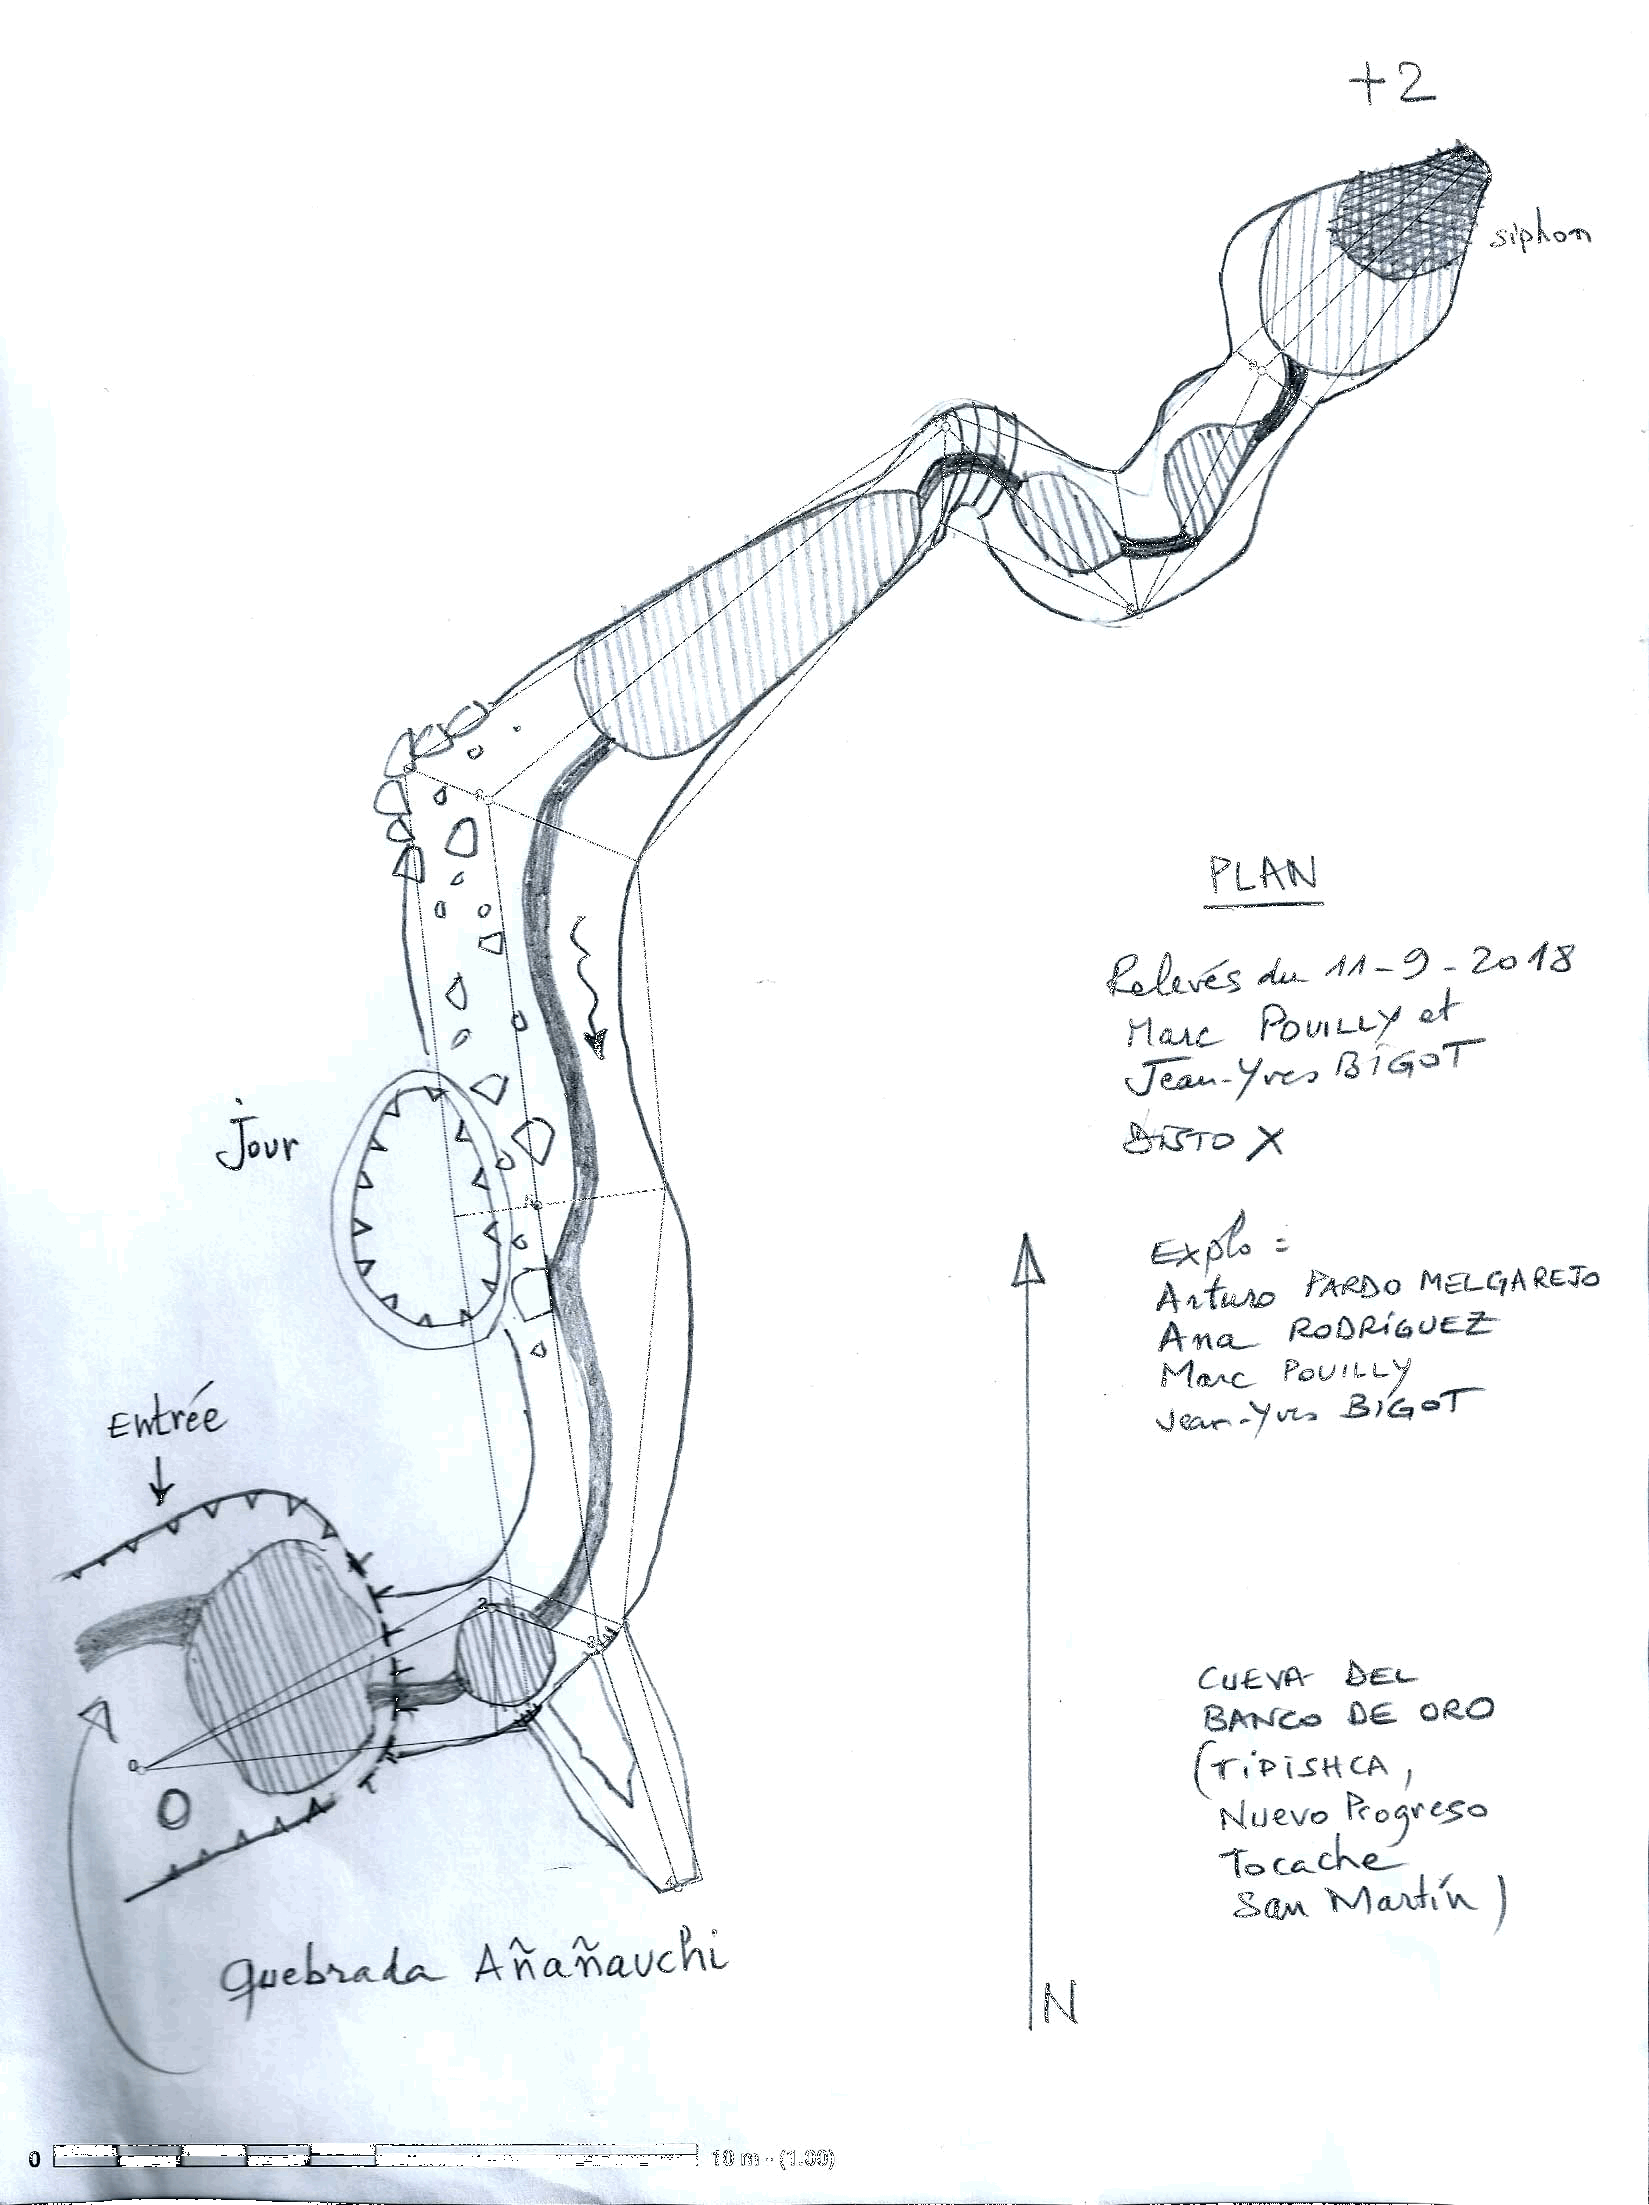 +2
siphon
PLAN
Relevés du 11-9-2018
Marc POUILLY et
Jean-Yves BIGOT
DISTO X
Jour
Explo =
Arturo PARDO MELGAREJO
Ana RODRÍGUEZ
Marc POUILLY
Jean-Yves BIGOT
Entrée
0
CUEVA DEL
BANCO DE ORO
(TIPISHCA,
Nuevo Progreso
Tocache
San Martín)
Quebrada Añañauchi
N
0 10 m - (1.00)